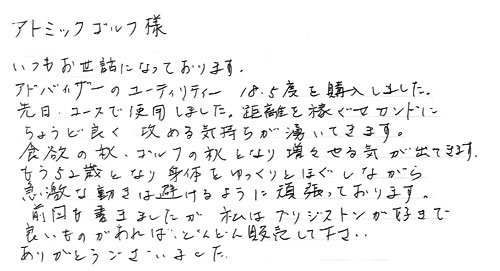 アトミックゴルフ様
いつもお世話になっております。
アドバイザーのユーティリティー 18.5度を購入しました。
先日、コースで使用しました。距離を稼ぐセカンドに
ちょうど良く 攻める気持ちが湧いてきます。
食欲の秋、ゴルフの秋となり増々やる気が出てきます。
もう52歳となり身体をゆっくりとほぐしながら
急激な動きは避けるように頑張っております。
前回も書きましたが 私はブリジストンが好きで
良いものがあれば、どんどん販売して下さい。
ありがとうございました。